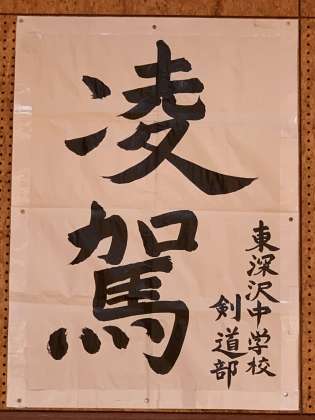 凌駕
東深沢中学校
剣道部